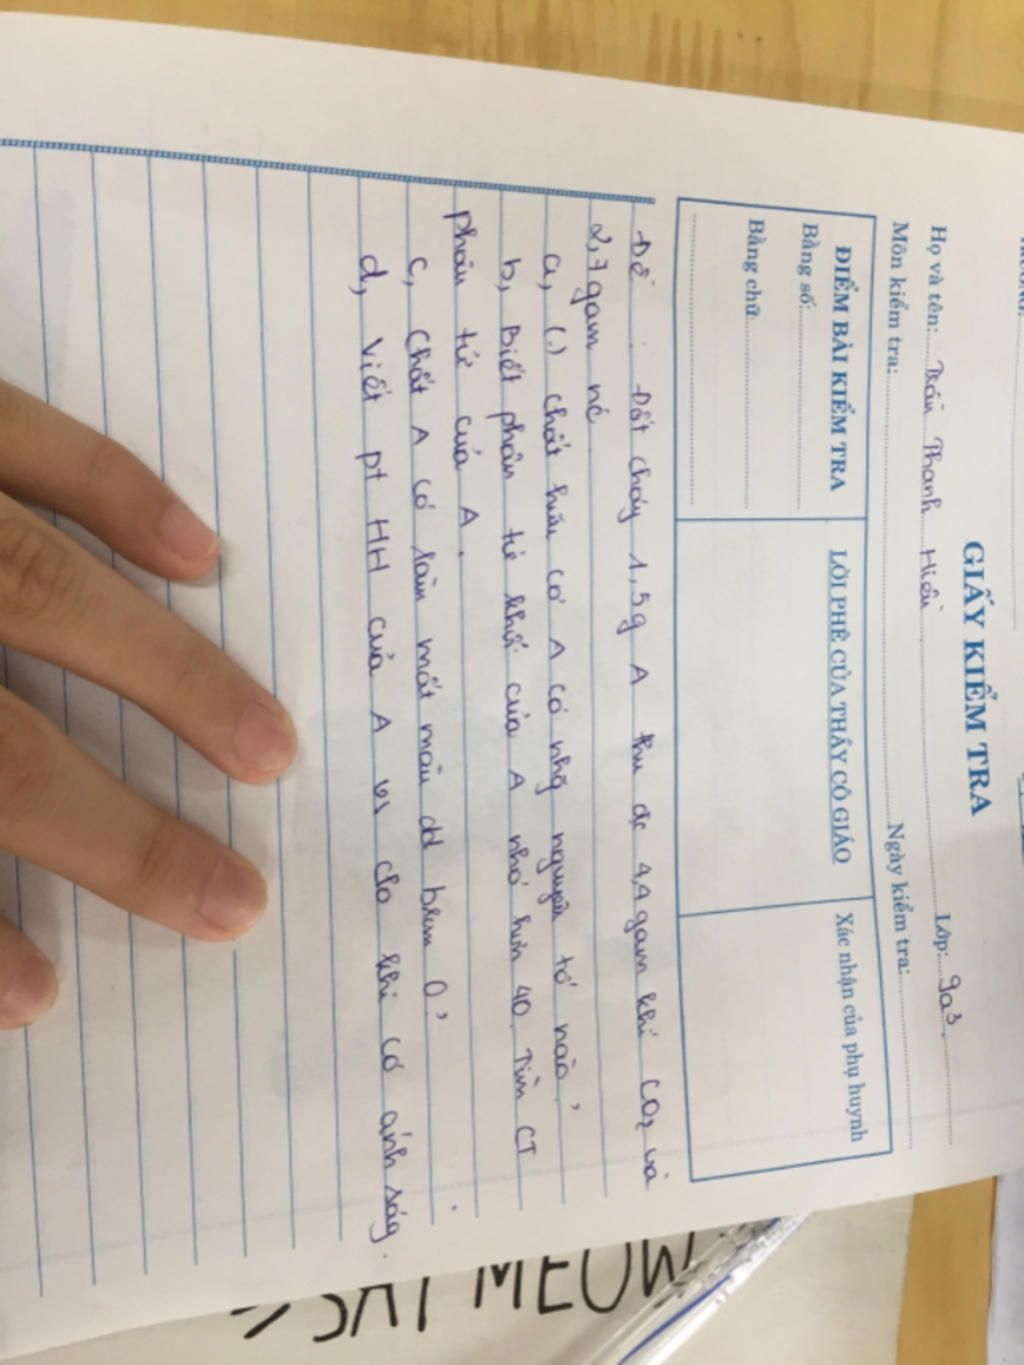 GIẤY KIỂM TRA
Họ và tên: Trần Thanh Hiền Lớp: 9a3
Môn kiểm tra: Ngày kiểm tra:
ĐIỂM BÀI KIỂM TRA
Bằng số:
Bằng chữ
LỜI PHÊ CỦA THẦY CÔ GIÁO
Xác nhận của phụ huynh
Đề : Đốt cháy 1,5g A thu đc 4,4 gam khí CO2 và
2,7 gam nc
a, (.) chất hữu cơ A có nhg nguyên tố nào,
b, Biết phân tử khối của A nhỏ hơn 40. Tìm CT
phân tử của A.
c, Chất A có làm mất màu dd brom 0'
d, Viết pt HH của A vs clo khi có ánh ság.
SAY MEOW